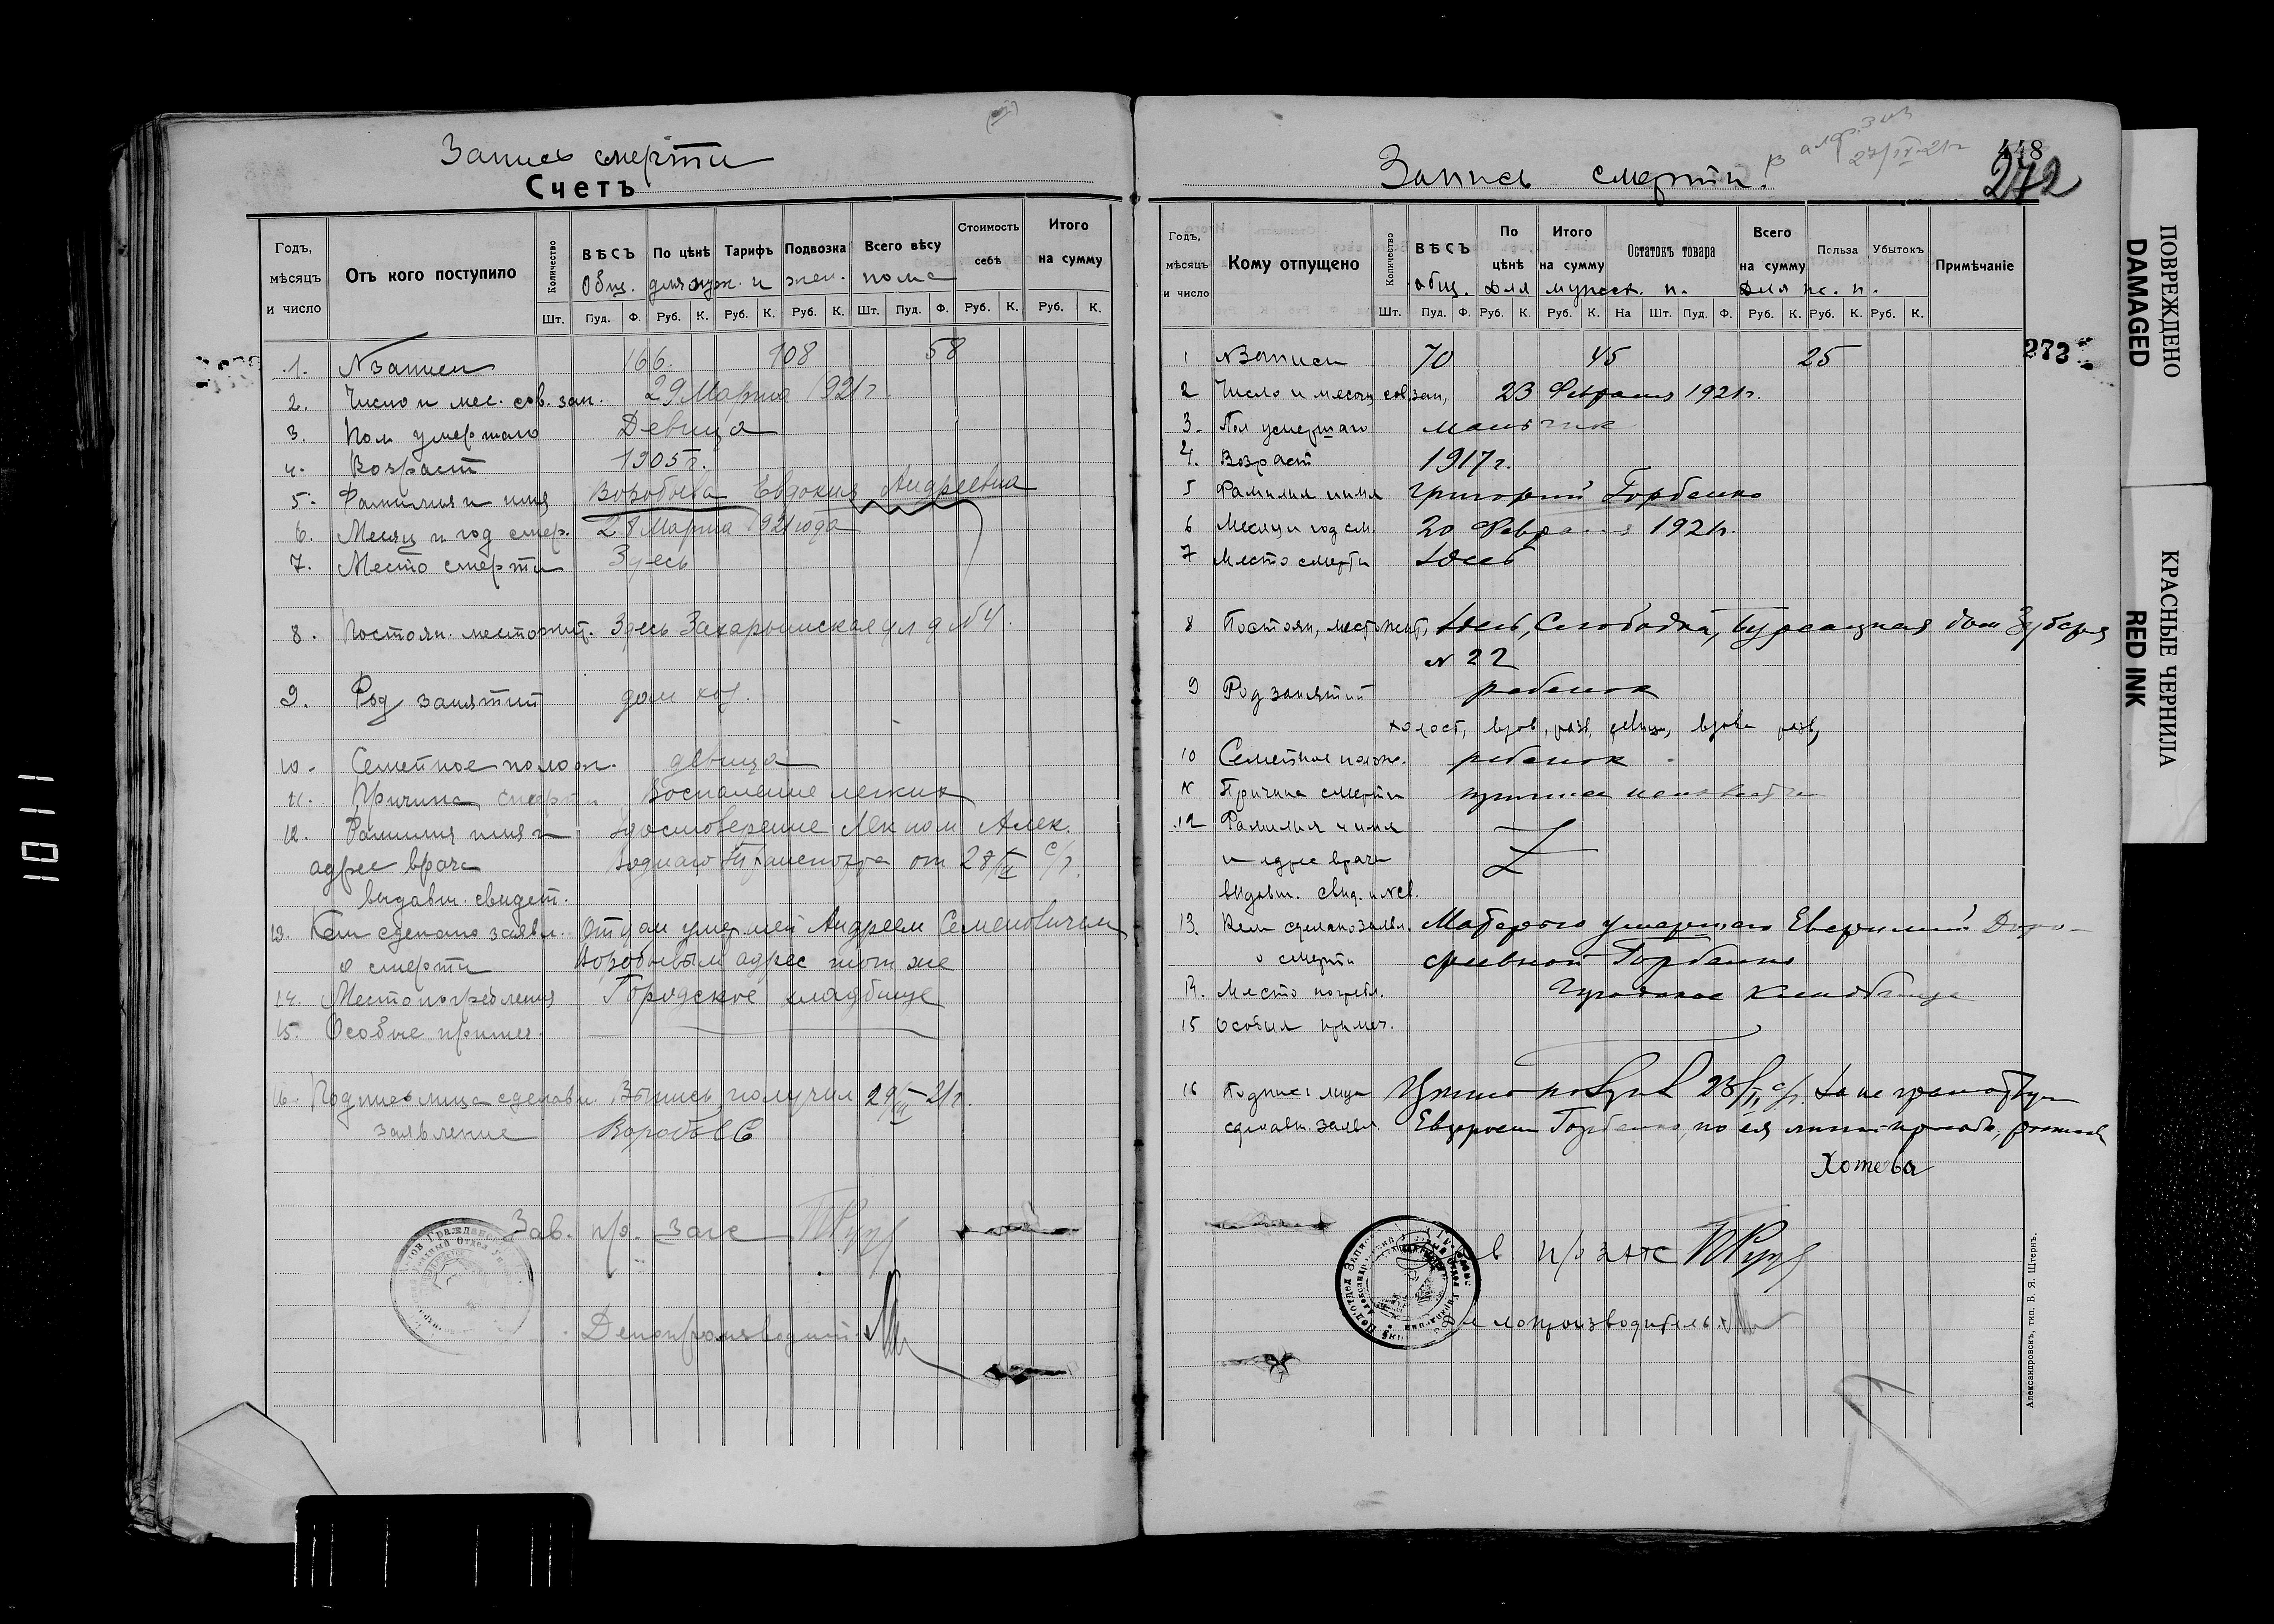 Запись смерти
Счетъ
Годъ, мѣсяцъ и число
Отъ кого поступило
Количество
ВѢСЪ
По цѣнѣ
Тарифъ
Подвозка
Всего вѣсу
Стоимость себѣ
Итого на сумму
Общ. для муж. и жен. пола
Шт. Пуд. Ф. Руб. К. Руб. К. Руб. К. Шт. Пуд. Ф. Руб. К. Руб. К.
1. N записи 166. 108 58
2. Число и мес. сов. зап. 29 Марта 1921 г.
3. Пол умершаго Девица
4. Возраст 1905 г.
5. Фамилия и имя Воробьева Евдокия Андреевна
6. Месяц и год смер. 28 Марта 1921 года
7. Место смерти Здесь
8. Постоян. местожит. Здесь Захарьинская ул д № 4.
9. Род занятий дом хоз.
10. Семейное полож. девица
11. Причина смерти Воспаление легких
12. Фамилия имя и Удостоверение Лек пом Алек.
адрес врача Водного Транспорта от 28/III с/г.
выдавш. свидет.
13. Кем сделано заявл. Отцом умершей Андреем Семеновичем
о смерти Воробьевым адрес тот же
14. Место погребения Городское кладбище
15. Особые примеч.
16. Подпись лица сделавш. Выпись получил 29/III 21 г.
заявление Воробьев
Зав. п/о. загс
Делопроизводит.
Запись смерти.
27/IV-21 г
448
272
Годъ, мѣсяцъ и число
Кому отпущено
Количество
ВѢСЪ
По цѣнѣ
Итого на сумму
Остатокъ товара
Всего на сумму
Польза
Убытокъ
Примѣчаніе
общ. для мужск. п. для ж. п.
Шт. Пуд. Ф. Руб. К. Руб. К. На Шт. Пуд. Ф. Руб. К. Руб. К. Руб. К.
1 N Записи 70 45 25
273
2 Число и месяц сов. зап. 23 Февраля 1921 г.
3. Пол умершаго мальчик
4. Возраст 1917 г.
5 Фамилия и имя Григорий Горбенко
6 Месяц и год см. 20 Февраля 1921 г.
7 Место смерти Здесь
8 Постоян. место жит. Здесь, Слободка, дом Зубаря
N 22
9 Род занятий ребенок
холост, вдов, разв, девица, вдова разв,
10 Семейное полож. ребенок
11 Причина смерти причина неизвестна
12 Фамилия и имя
и адрес врача
выдавш. свид. и N св.
13. Кем сделано заявл. Матерью умершаго
о смерти Горбенко
14. Место погребл. Городское Кладбище
15 Особыя примеч.
16 Подпись лица 23/II с/г. За неграмотную
сделавш. заявл Горбенко, по ея личной просьбе,
Хотева
п/о загс
Делопроизводитель
Александровскъ, тип. Б. Я. Штернъ.
ПОВРЕЖДЕНО
DAMAGED
КРАСНЫЕ ЧЕРНИЛА
RED INK
1011